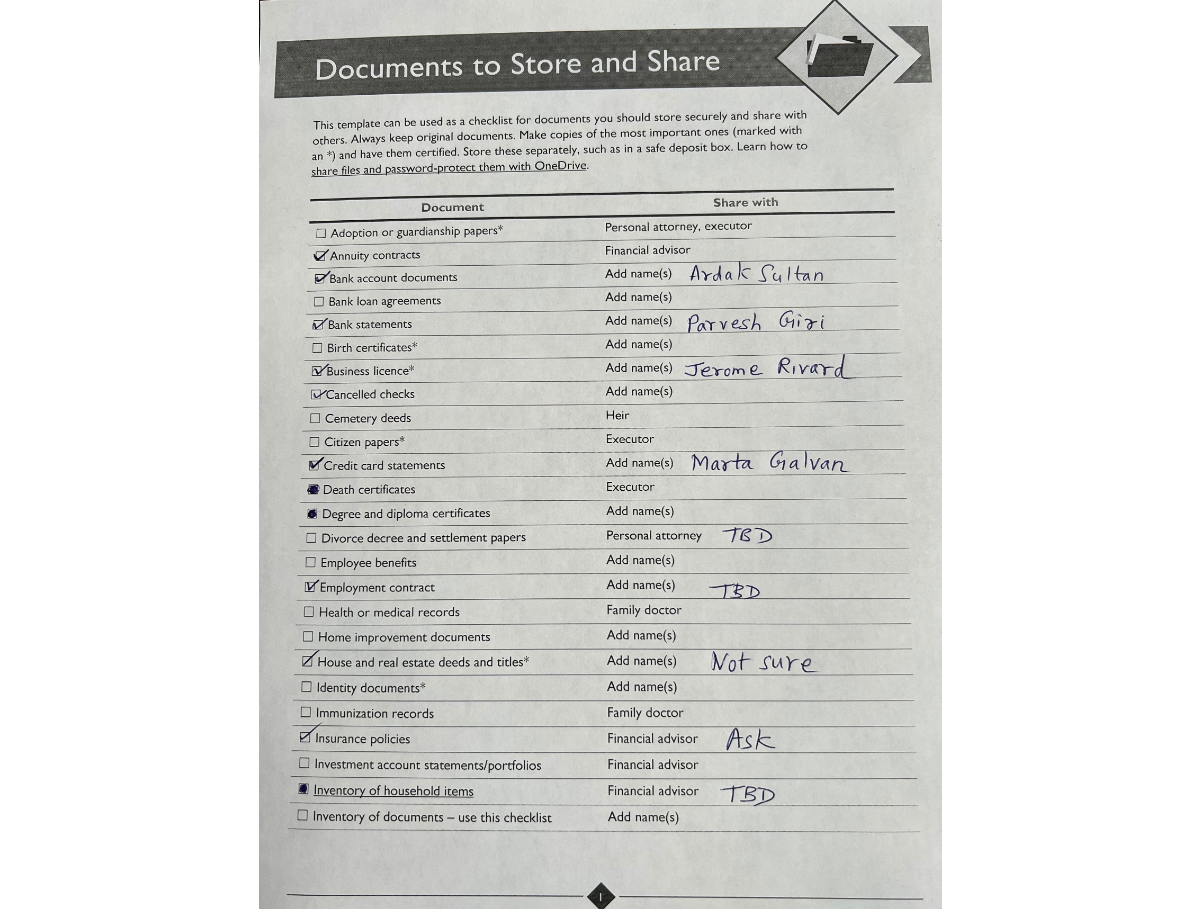 Documents to Store and Share
This template can be used as a checklist for documents you should store securely and share with
others. Always keep original documents. Make copies of the most important ones (marked with
an *) and have them certified. Store these separately, such as in a safe deposit box. Learn how to
share files and password-protect them with OneDrive.
Document Share with
Adoption or guardianship papers* Personal attorney, executor
Annuity contracts Financial advisor
Bank account documents Add name(s) Ardak Sultan
Bank loan agreements Add name(s)
Bank statements Add name(s) Parvesh Giri
Birth certificates* Add name(s)
Business licence* Add name(s) Jerome Rivard
Cancelled checks Add name(s)
Cemetery deeds Heir
Citizen papers* Executor
Credit card statements Add name(s) Marta Galvan
Death certificates Executor
Degree and diploma certificates Add name(s)
Divorce decree and settlement papers Personal attorney TBD
Employee benefits Add name(s)
Employment contract Add name(s) TBD
Health or medical records Family doctor
Home improvement documents Add name(s)
House and real estate deeds and titles* Add name(s) Not sure
Identity documents* Add name(s)
Immunization records Family doctor
Insurance policies Financial advisor Ask
Investment account statements/portfolios Financial advisor
Inventory of household items Financial advisor TBD
Inventory of documents – use this checklist Add name(s)
1